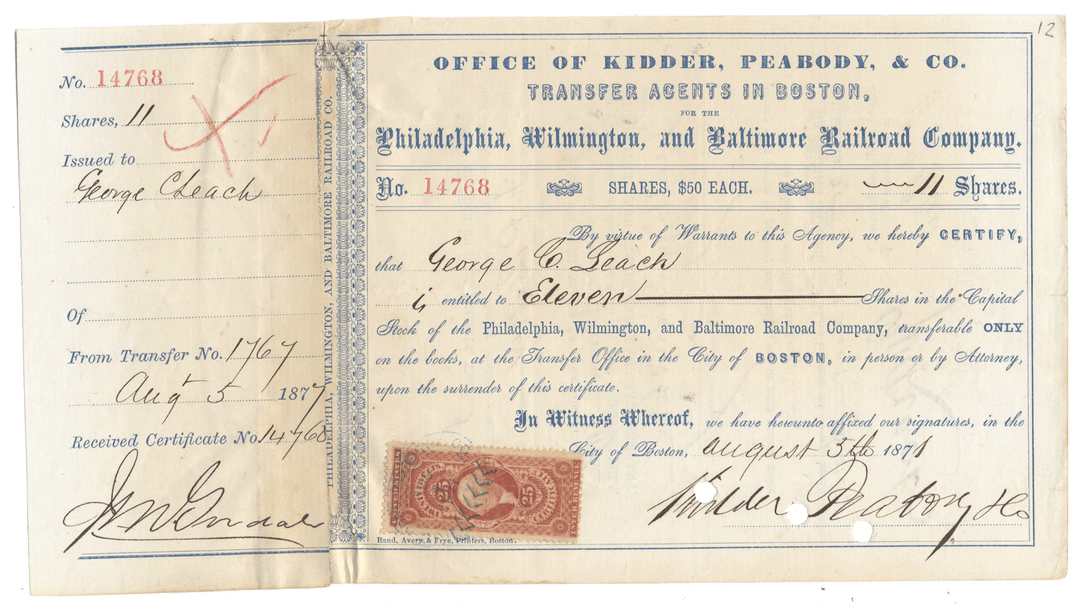 12
No. 14768
Shares, 11
Issued to
George C Leach
Of
From Transfer No. 1767
Augt 5 1871
Received Certificate No 14768
PHILADELPHIA, WILMINGTON, AND BALTIMORE RAILROAD CO.
OFFICE OF KIDDER, PEABODY, & CO.
TRANSFER AGENTS IN BOSTON,
FOR THE
Philadelphia, Wilmington, and Baltimore Railroad Company.
No. 14768 SHARES, $50 EACH. 11 Shares.
By virtue of Warrants to this Agency, we hereby CERTIFY,
that George C. Leach
is entitled to Eleven Shares in the Capital
Stock of the Philadelphia, Wilmington, and Baltimore Railroad Company, transferable ONLY
on the books, at the Transfer Office in the City of BOSTON, in person or by Attorney,
upon the surrender of this certificate.
In Witness Whereof, we have hereunto affixed our signatures, in the
City of Boston, august 5th 1871
Kidder Peabody & Co
25 25
Rand, Avery, & Frye, Printers, Boston.